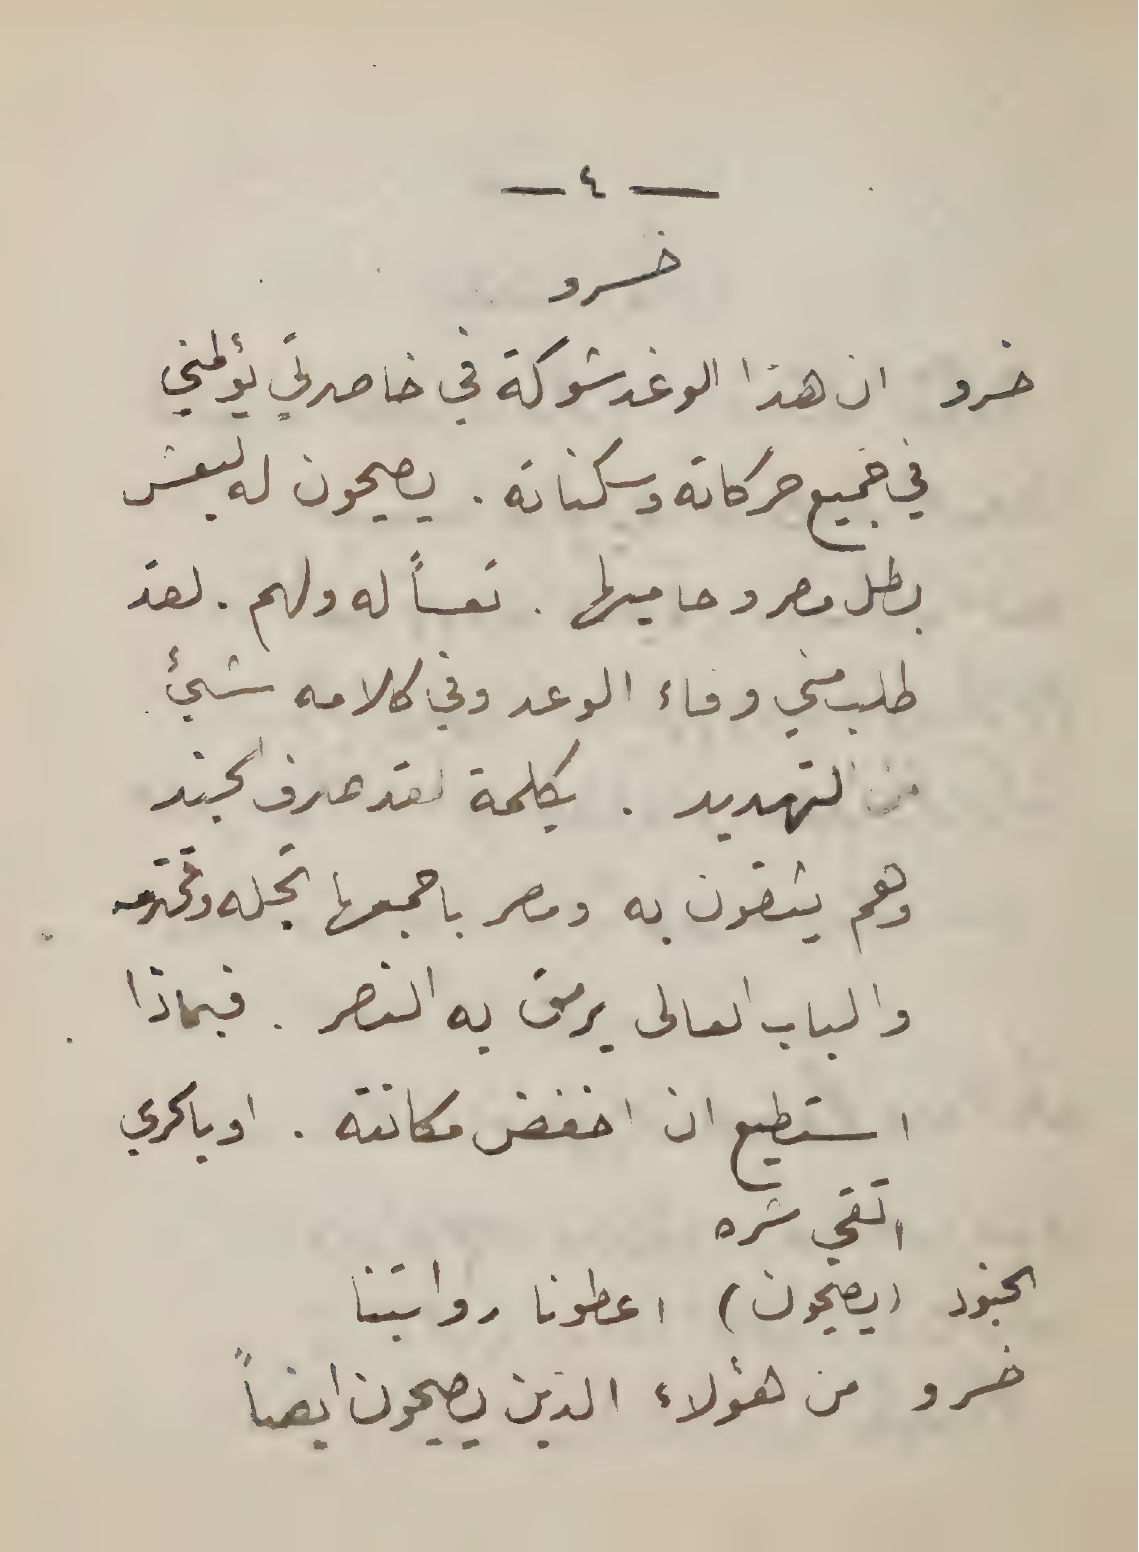 — ٤ —
خسرو
خسرو ان هذا الوغد شوكة في خاصرتي يؤلمني
في جميع حركاته وسكناته . يصيحون له ليعش
بطل مصر وحاميها . تعساً له ولهم . لقد
طلب مني وفاء الوعد وفي كلامه شيئ
من التهديد . بكلمة لقد صرف الجند
وهم يثقون به ومصر باجمعها تجله وتحترمه
والباب العالى يرمق به النصر . فبماذا
استطيع ان اخفض مكانته . او باكري
اتقي شره
الجنود (يصيحون) اعطونا رواتبنا
خسرو من هؤلاء الذين يصيحون ايضاً